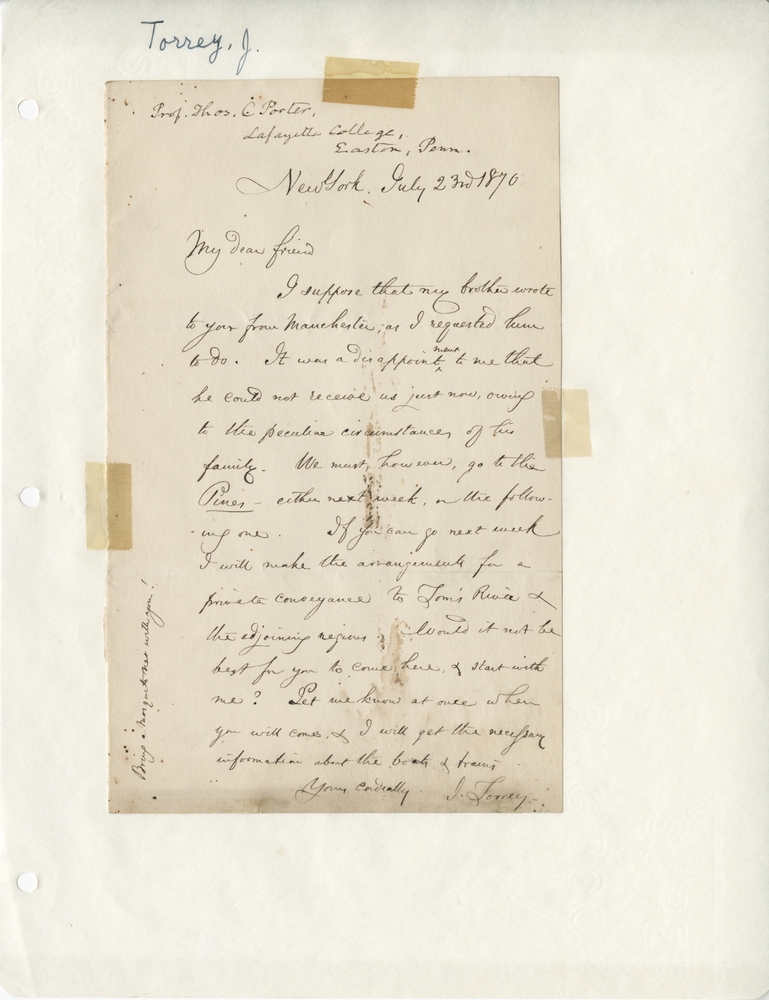 Torrey, J.
Prof. Thos. C Porter,
Lafayette College,
Easton, Penn.
New York. July 23rd 1870
My dear friend
I suppose that my brother wrote
to you from Manchester, as I requested him
to do. It was a disappointment to me that
he could not receive us just now, owing
to the peculiar circumstances of his
family. We must, however, go to the
Pines - either next week, or the follow-
ing one. If you can go next week
I will make the arrangements for a
private conveyance to Tom's River &
the adjoining regions. Would it not be
best for you to come here, & start with
me? Let me know at once when
you will come, & I will get the necessary
information about the boats & trains
Yours cordially J. Torrey.
Bring a mosquito net with you!